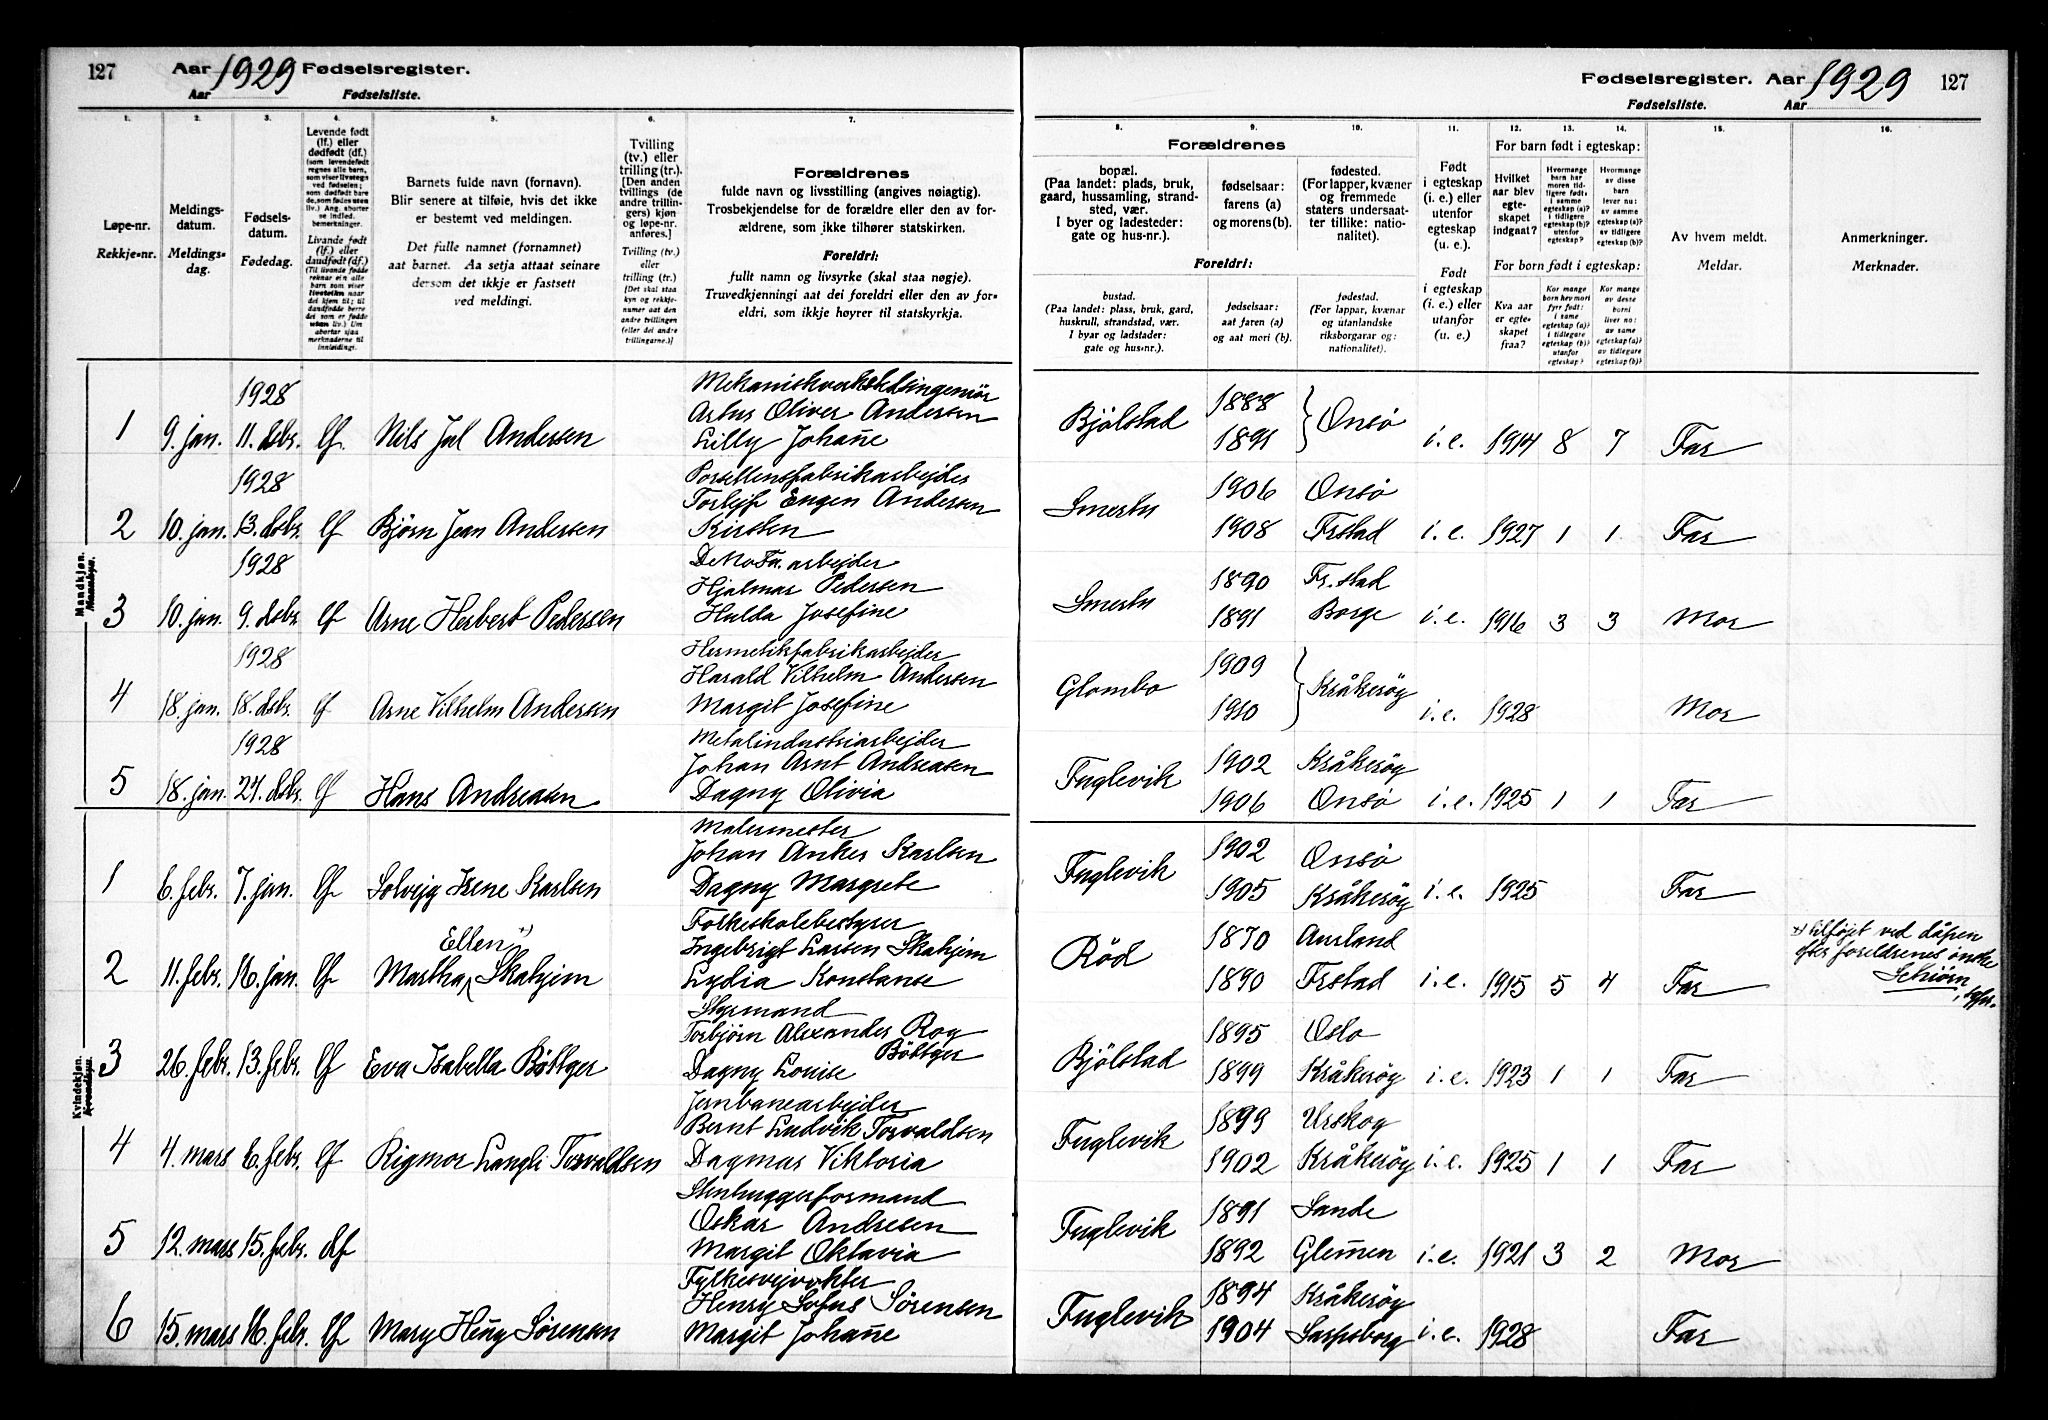 127 Aar 1929 Fødselsregister.
Aar Fødselsliste.
1. 2. 3. 4. 5. 6. 7.
Løpe-nr.
Rekkje=nr.
Meldings-
datum.
Meldings=
dag.
Fødsels-
datum.
Fødedag.
Levende født
(lf.) eller
dødfødt (df.)
Levande født
(lf.) eller
daudfødt (df.)
Barnets fulde navn (fornavn).
Blir senere at tilføie, hvis det ikke
er bestemt ved meldingen.
Det fulle namnet (fornamnet)
aat barnet. Aa setja attaat seinare
dersom det ikkje er fastsett
ved meldingi.
Tvilling
(tv.) eller
trilling (tr.).
[Den anden
tvillings (de
andre trillin-
gers) kjøn
og løpe-nr.
anføres.]
Tvilling (tv.)
eller
trilling (tr.)
[Det skal staa
kyn og rekkje-
numer aat den
andre tvillingen
(eller dei andre
trillingarne.)]
Forældrenes
fulde navn og livsstilling (angives nøiagtig).
Trosbekjendelse for de forældre eller den av for-
ældrene, som ikke tilhører statskirken.
Foreldri:
fullt namn og livsyrke (skal staa nøgje).
Truvedkjenningi aat dei foreldri eller den av for=
eldri, som ikkje høyrer til statskyrkja.
Mandkjøn.
1928 Mekaniskverkstedsingeniör
Artur Oliver Andersen
1 9. jan. 11. dsbr. lf. Nils Jul Andersen Lilly Johan̄e
1928 Porsellensfabrikarbejder
Torleif Eugen Andersen
2 10. jan. 13. dsbr. lf Bjørn Jean Andersen Kirsten
1928 DeNoFa. arbejder
Hjalmar Pedersen
3 10. jan. 9. dsbr. lf Arne Herbert Pedersen Hulda Josefine
1928 Hermetikfabrikarbejder
Harald Vilhelm Andersen
4 18. jan. 18. dsbr. lf Arne Vilhelm Andersen Margit Josefine
1928 Metalindustriarbejder
Johan Arnt Andreasen
5 18. jan. 27. dsbr. lf Hans Andreasen Dagny Olivia
Kvindekjøn.
Malermester
Johan Anker Karlsen
1 6. febr. 7. jan. lf Solvejg Irene Karlsen Dagny Margrete
Folkeskolebestyrer
Ellen x) Ingebrigt Larsen Skahjem
2 11. febr. 16. jan. lf Martha Skahjem Lydia Konstanse
Styrmand
Torbjørn Alexander Roy
Böttger
3 26. febr. 13. febr. lf Eva Isabella Böttger Dagny Louise
Jernbanearbejder
Bernt Ludvik Torvaldsen
4 4. mars 6. febr. lf Rigmor Langli Torvaldsen Dagmar Viktoria
Stenhuggerformand
Oskar Andresen
5 12. mars 15. febr. df Margit Oktavia
Fylkesvejvokter
Henry Sofus Sørensen
6 15. mars 16. febr. lf Mary Hen̄y Sørensen Margit Johan̄e
Fødselsregister. Aar 1929 127
Fødselsliste. Aar
8. 9. 10. 11. 12. 13. 14. 15. 16.
Forældrenes
bopæl.
(Paa landet: plads, bruk,
gaard, hussamling, strand-
sted, vær.
I byer og ladesteder:
gate og hus-nr.).
fødselsaar:
farens (a)
og morens (b).
fødested.
(For lapper, kvæner
og fremmede
staters undersaat-
ter tillike: natio-
nalitet).
Foreldri:
bustad.
(Paa landet: plass, bruk, gard,
huskrull, strandstad, vær.
I byar og ladstader:
gate og hus=nr.).
fødselsaar:
aat faren (a)
og aat mori (b).
fødestad.
(For lappar, kvænar
og utanlandske
riksborgarar og:
nationalitet).
Født
i egteskap
(i. e.) eller
utenfor
egteskap
(u. e.).
Født
i egteskap
(i. e.) eller
utanfor
(u. e.)
For barn født i egteskap:
Hvilket
aar blev
egte-
skapet
indgaat?
For born født i egteskap:
Kva aar
er egte=
skapet
fraa?
Av hvem meldt.
Meldar.
Anmerkninger.
Merknader.
Bjölstad 1888 Onsø
1891 i. e. 1914 8 7 Far
Smertu 1906 Onsø
1908 Frstad i. e. 1927 1 1 Far
Smertu 1890 Fr.stad
1891 Borge i. e. 1916 3 3 Mor
Glombo 1909 Kråkeröy
1910 i. e. 1928 Mor
Fuglevik 1902 Kråkeröy
1906 Onsø i. e. 1925 1 1 Far
Fuglevik 1902 Onsø
1905 Kråkeröy i. e. 1925 Far
Röd 1870 Aurland x) tilföjet ved dåpen
efter foreldrenes önske
1890 Frstad i. e. 1915 5 4 Far Schiörn
Bjölstad 1895 Oslo
1899 Kråkeröy i. e. 1923 1 1 Far
Fuglevik 1899 Urskog
1902 Kråkeröy i. e. 1925 1 1 Far
Fuglevik 1891 Sande
1892 Glem̄en i. e. 1921 3 2 Mor
Fuglevik 1894 Kråkeröy
1904 Sarpsborg i. e. 1928 Far